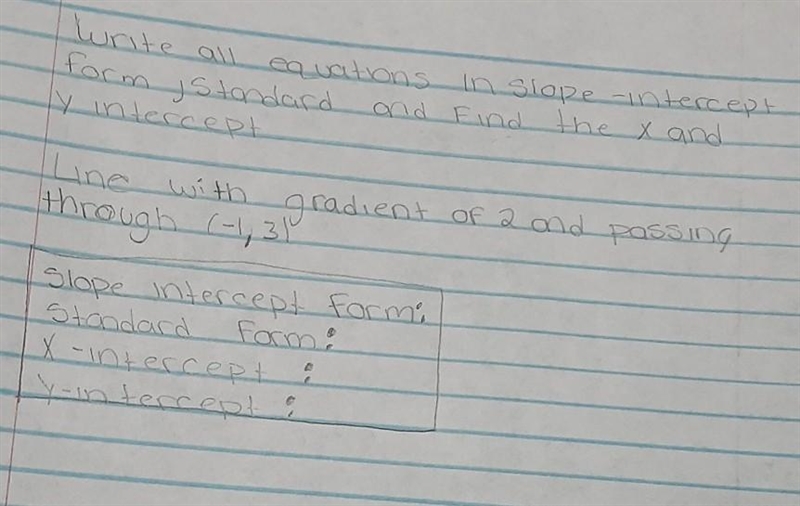 Write all equations in slope-intercept
form, Standard and Find the x and
y intercept
Line with gradient of 2 and passing
through (-1, 3)
Slope intercept form:
Standard Form:
X-intercept :
Y-intercept :